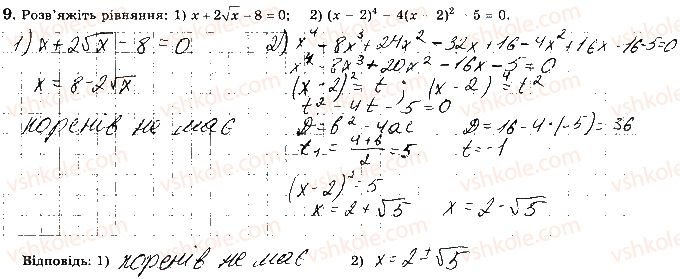 9. Розв'яжіть рівняння: 1) x + 2√x − 8 = 0; 2) (x − 2)⁴ − 4(x − 2)² − 5 = 0.
1) x + 2√x − 8 = 0
x = 8 − 2√x
коренів не має
2) x⁴ − 8x³ + 24x² − 32x + 16 − 4x² + 16x − 16 − 5 = 0
x⁴ − 8x³ + 20x² − 16x − 5 = 0
(x − 2)² = t ; (x − 2)⁴ = t²
t² − 4t − 5 = 0
D = b² − 4ac D = 16 − 4·(−5) = 36
t₁ = (4+6)/2 = 5 t = −1
(x − 2)² = 5
x = 2 + √5 x = 2 − √5
Відповідь: 1) коренів не має 2) x = 2 ± √5
vshkole.com